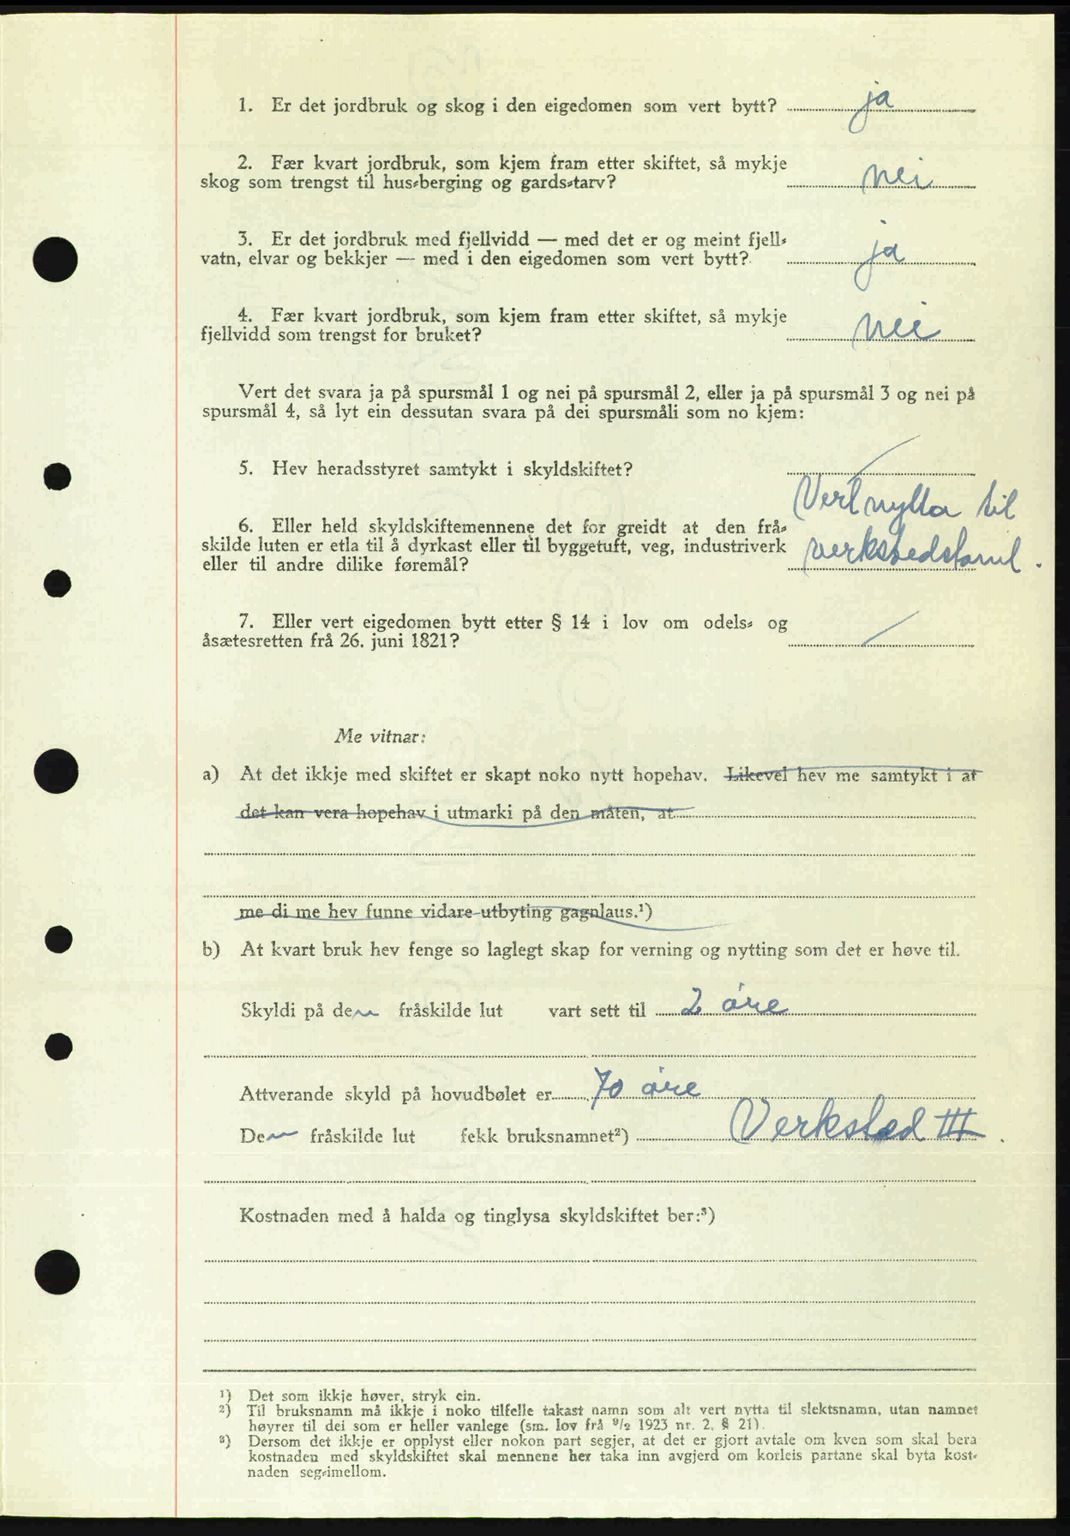 1. Er det jordbruk og skog i den eigedomen som vert bytt? ja
2. Fær kvart jordbruk, som kjem fram etter skiftet, så mykje
skog som trengst til hus-berging og gards-tarv? nei
3. Er det jordbruk med fjellvidd — med det er og meint fjell-
vatn, elvar og bekkjer — med i den eigedomen som vert bytt? ja
4. Fær kvart jordbruk, som kjem fram etter skiftet, så mykje
fjellvidd som trengst for bruket? nei
Vert det svara ja på spursmål 1 og nei på spursmål 2, eller ja på spursmål 3 og nei på
spursmål 4, så lyt ein dessutan svara på dei spursmåli som no kjem:
5. Hev heradsstyret samtykt i skyldskiftet?
Vert nytta til
6. Eller held skyldskiftemennene det for greidt at den frå-
skilde luten er etla til å dyrkast eller til byggetuft, veg, industriverk verkstedstomt.
eller til andre dilike føremål?
7. Eller vert eigedomen bytt etter § 14 i lov om odels- og
åsætesretten frå 26. juni 1821?
Me vitnar:
a) At det ikkje med skiftet er skapt noko nytt hopehav. Likevel hev me samtykt i at
det kan vera hopehav i utmarki på den måten, at
me di me hev funne vidare utbyting gagnlaus.¹)
b) At kvart bruk hev fenge so laglegt skap for verning og nytting som det er høve til.
Skyldi på den fråskilde lut vart sett til 2 øre
Attverande skyld på hovudbølet er 70 øre
Den fråskilde lut fekk bruksnamnet²) Verksted III.
Kostnaden med å halda og tinglysa skyldskiftet ber:³)
¹) Det som ikkje høver, stryk ein.
²) Til bruksnamn må ikkje i noko tilfelle takast namn som alt vert nytta til slektsnamn, utan namnet
høyrer til dei som er heller vanlege (sm. lov frå 9/2 1923 nr. 2, § 21).
³) Dersom det ikkje er opplyst eller nokon part segjer, at det er gjort avtale om kven som skal bera
kostnaden med skyldskiftet skal mennene her taka inn avgjerd om korleis partane skal byta kost-
naden seg-imellom.